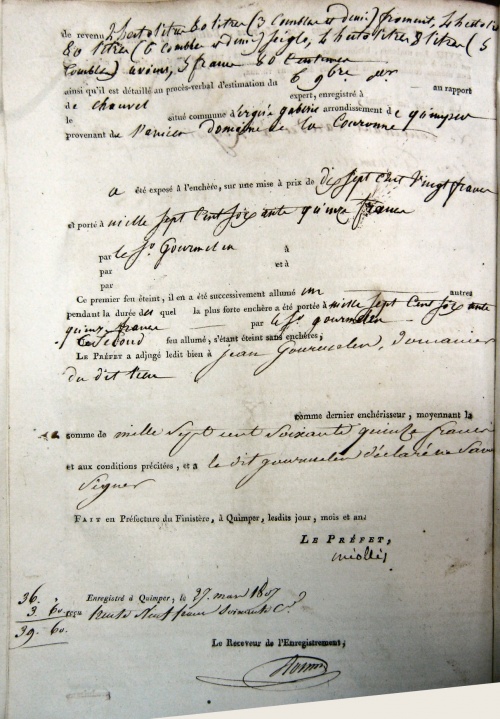 de revenu 2 hectolitres 80 litres (3 combles et demi) froment, 4 hectolitres
80 litres (6 combles et demi) seigle, 4 hectolitres 8 litres (5
combles) avoine, 5 francs 80 centimes
ainsi qu'il est détaillé au procès-verbal d'estimation du 6 9bre der au rapport
de chauvel expert, enregistré à
le situé commune d'ergué gabéric arrondissement de quimper
provenant de l'ancien Domaine de la Couronne
a été exposé à l'enchère, sur une mise à prix de dix sept cent vingt francs
et porté à mille sept cent soixante quinze francs
par le Sr. Gourmelen à
par et à
par
Ce premier feu éteint, il en a été successivement allumé un autres
pendant la durée du quel la plus forte enchère a été portée à mille sept cent soixante
quinze francs par le Sr. gourmelen
Ce second feu allumé, s'étant éteint sans enchères,
LE PRÉFET a adjugé ledit bien à jean Gourmelen, Domanier
du dit lieu
comme dernier enchérisseur, moyennant la
somme de mille sept cent soixante quinze francs
et aux conditions précitées, et a le dit gourmelen déclaré ne savoir
signer
FAIT en Préfecture du Finistère, à Quimper, lesdits jour, mois et an.
LE PRÉFET,
miollis
36. Enregistré à Quimper, le 27. mars 1807
3. 60 reçu trente neuf francs soixante Ces
39. 60.
Le Receveur de l'Enregistrement,